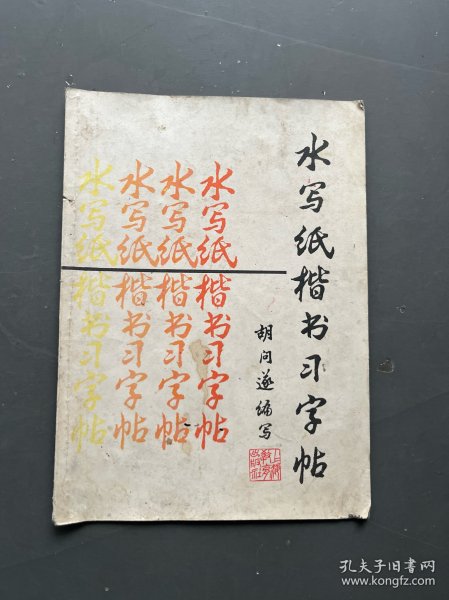 水写纸楷书习字帖
胡问遂编写
水写纸楷书习字帖
水写纸楷书习字帖
水写纸楷书习字帖
水写纸楷书习字帖
孔夫子旧书网
www.kongfz.com